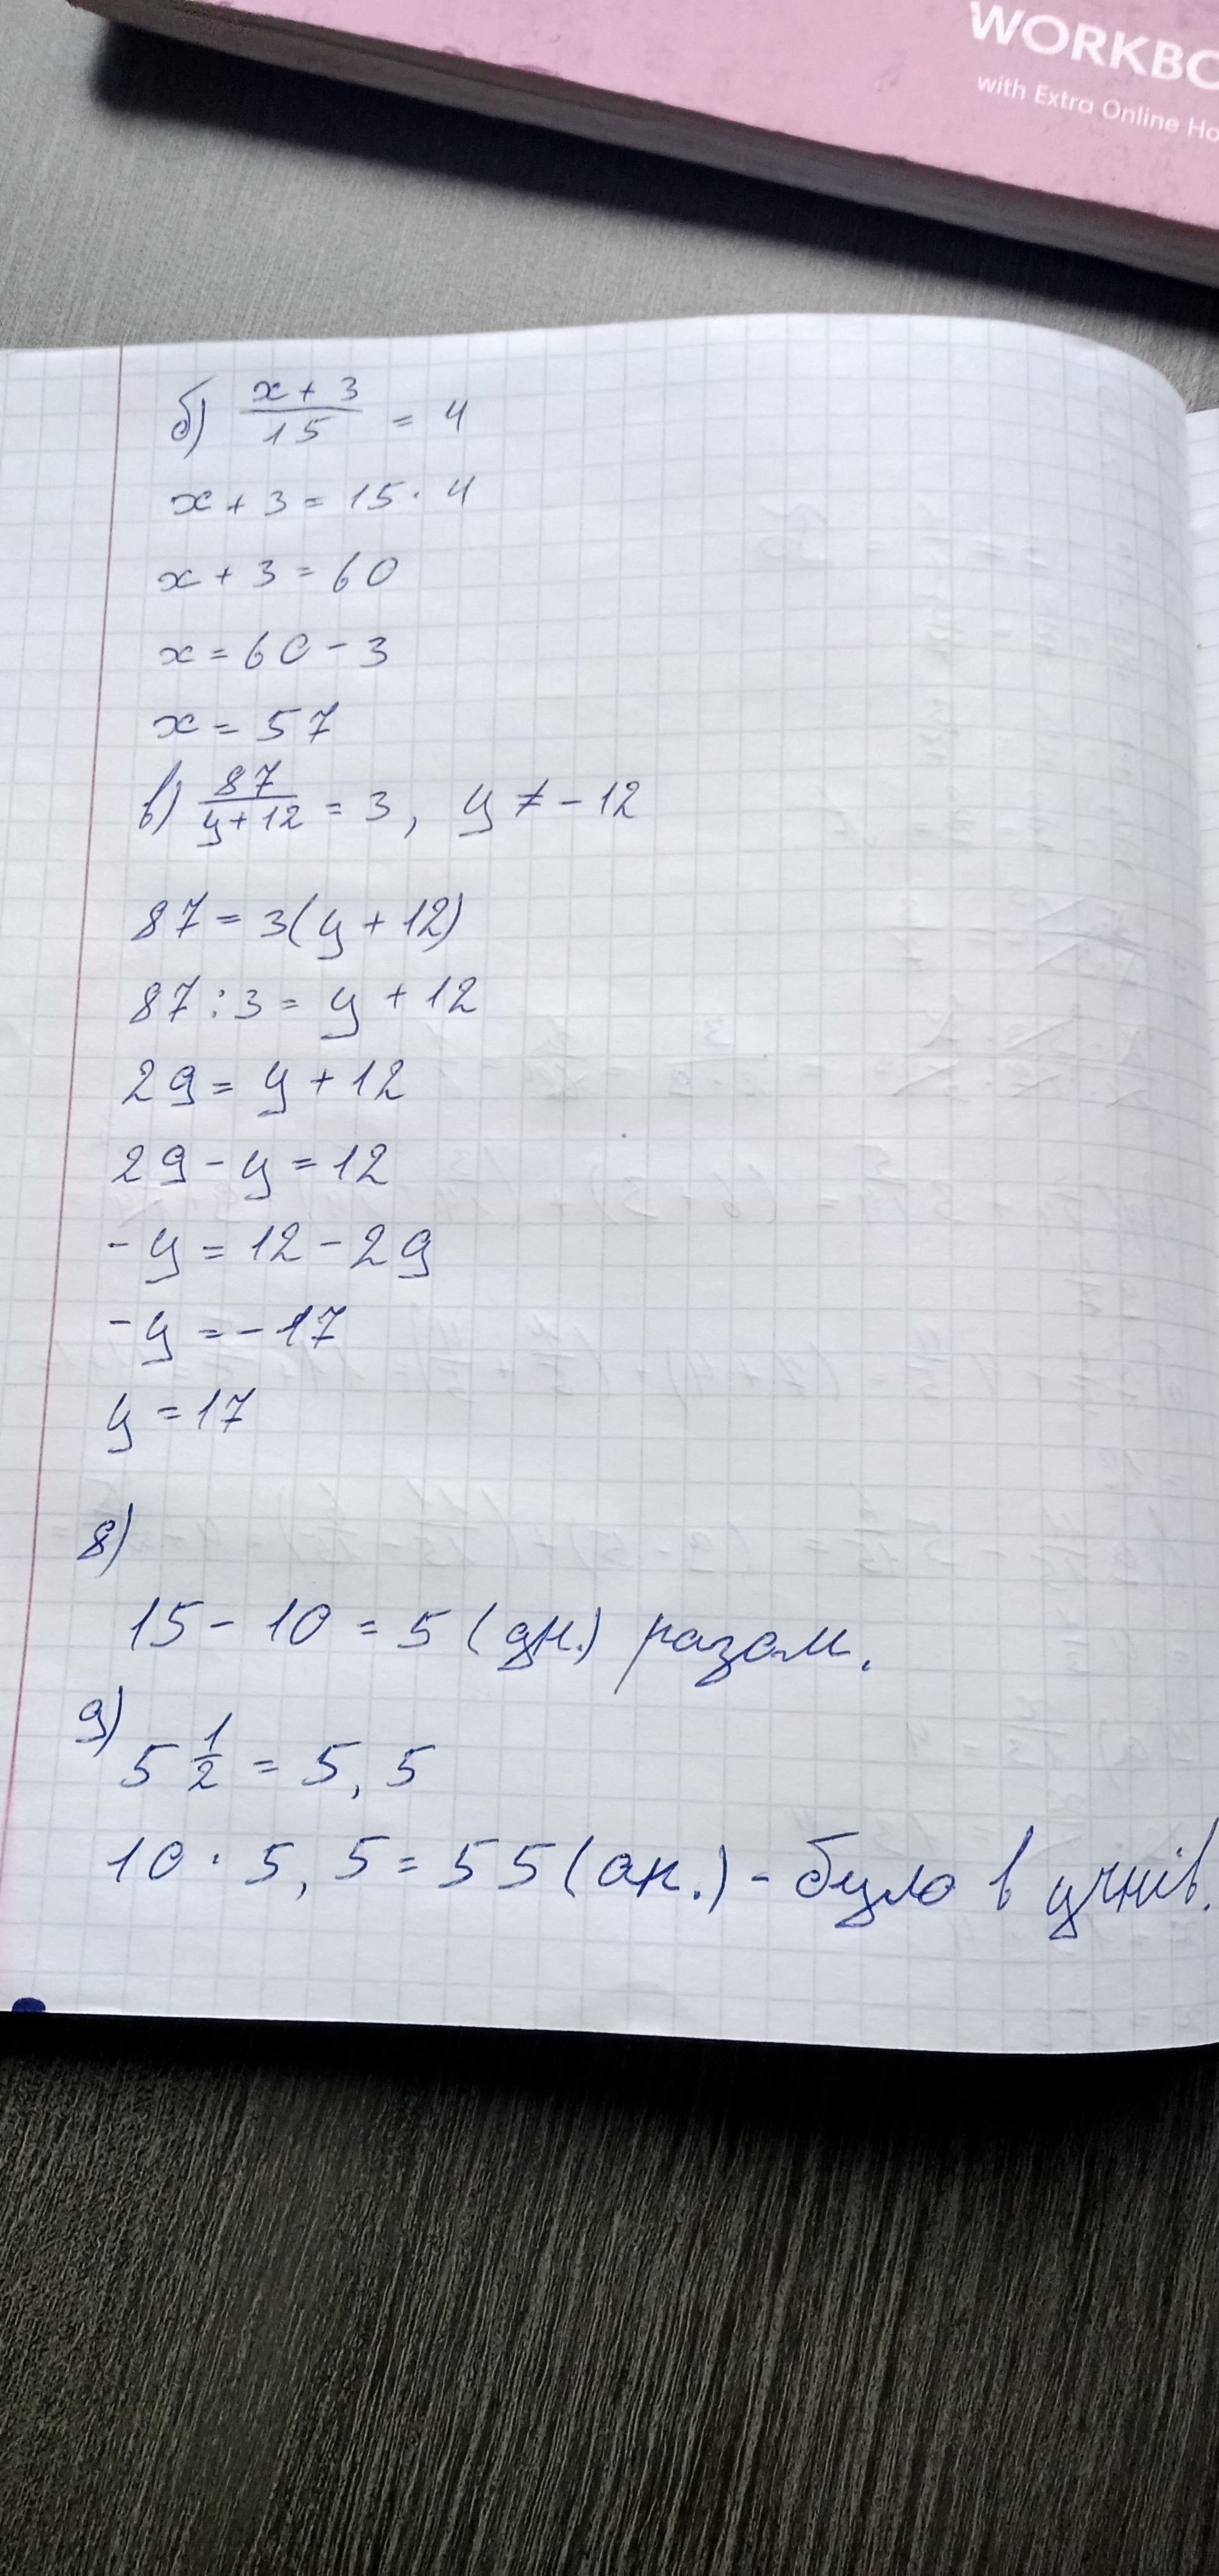 WORKBO
with Extra Online Ho
б) x + 3 / 15 = 4
x + 3 = 15 · 4
x + 3 = 60
x = 60 - 3
x = 57
в) 87 / y + 12 = 3, y ≠ - 12
87 = 3(y + 12)
87 : 3 = y + 12
29 = y + 12
29 - y = 12
- y = 12 - 29
- y = - 17
y = 17
8)
15 - 10 = 5 (дн.) разом.
9)
5 1/2 = 5,5
10 · 5,5 = 55 (ак.) - було в учнів.